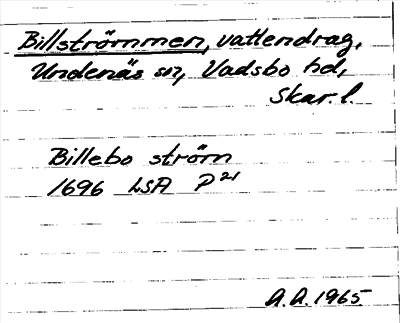 Billströmmen, vattendrag,
Undenäs sn, Vadsbo hd,
Skar. l.
Billebo ström
1696 LSA P²¹
A.A. 1965